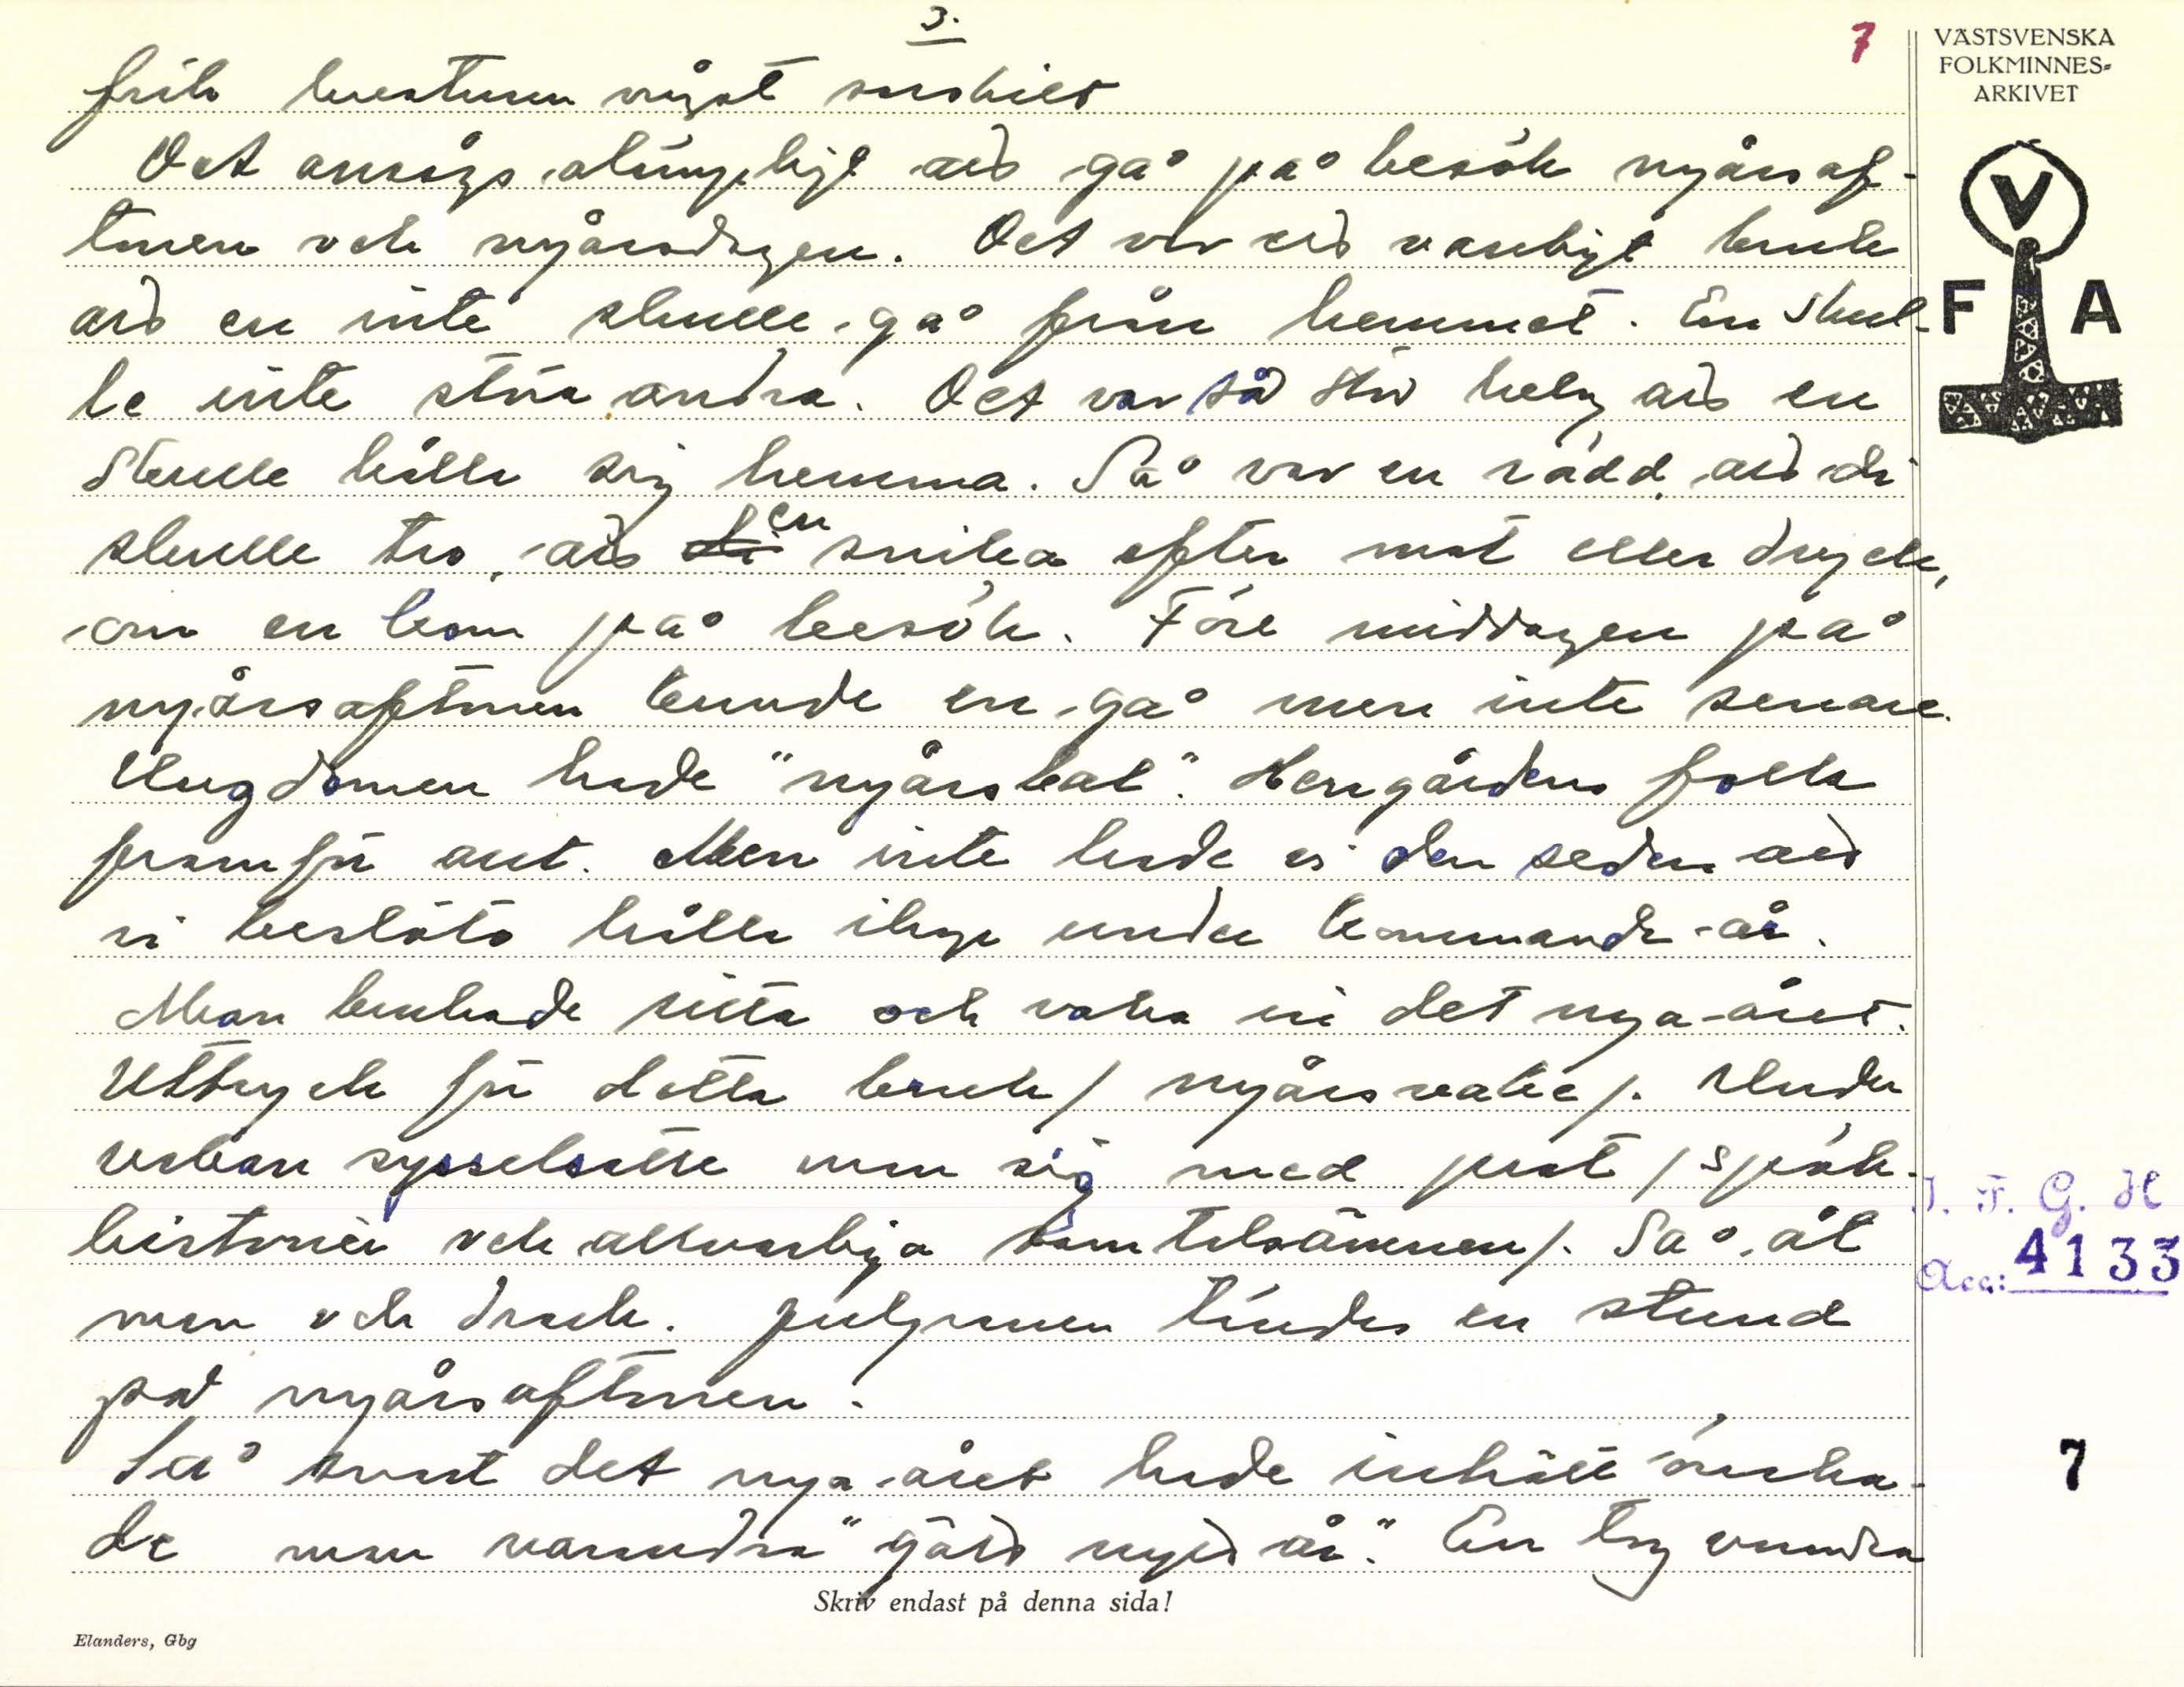 3.
7
VÄSTSVENSKA
FOLKMINNES-
ARKIVET
V
F A
frik hvarken något särskilt
Det ansågs olämpligt adt gå på besök nyårsaf-
tonen och nyårsdagen. Det var ett vanligt bruk
adt en inte skulle gå från hemmet. En skul-
le inte störa andra. Det var så stor helg adt en
skulle hålla sig hemma. Så var en rädd, adt di
skulle tro, adt en snika efter mat eller dryck,
om en kom på besök. Före middagen på
nyårsaftonen kunde en gå men inte senare.
Ungdomen hade "nyårsbal". Herrgårdens folk
framför allt. Men inte hade vi den seden adt
vi beslöto hålla ihop under kommande år.
Man brukade sitta och vaka in det nya året.
Uttryck för detta bruk / nyårsvake /. Under
vakan sysselsatte man sig med prat / spök-
historier och allvarliga samtalsämnen /. Så åt
man och drack. Julgranen tändes en stund
på nyårsaftonen.
Så snart det nya året hade inträtt önska-
de man varandra "gôdt nytt år". En tog varandra
J. F. G. H
Acc: 4133
7
Skriv endast på denna sida!
Elanders, Gbg